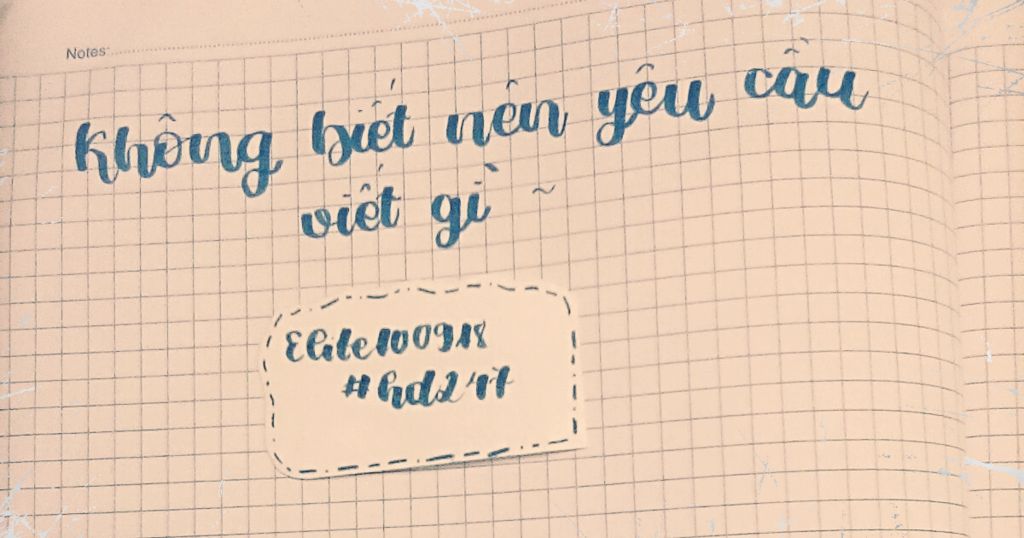 Notes:
Không biết nên yêu cầu
viết gì ~
Elite100918